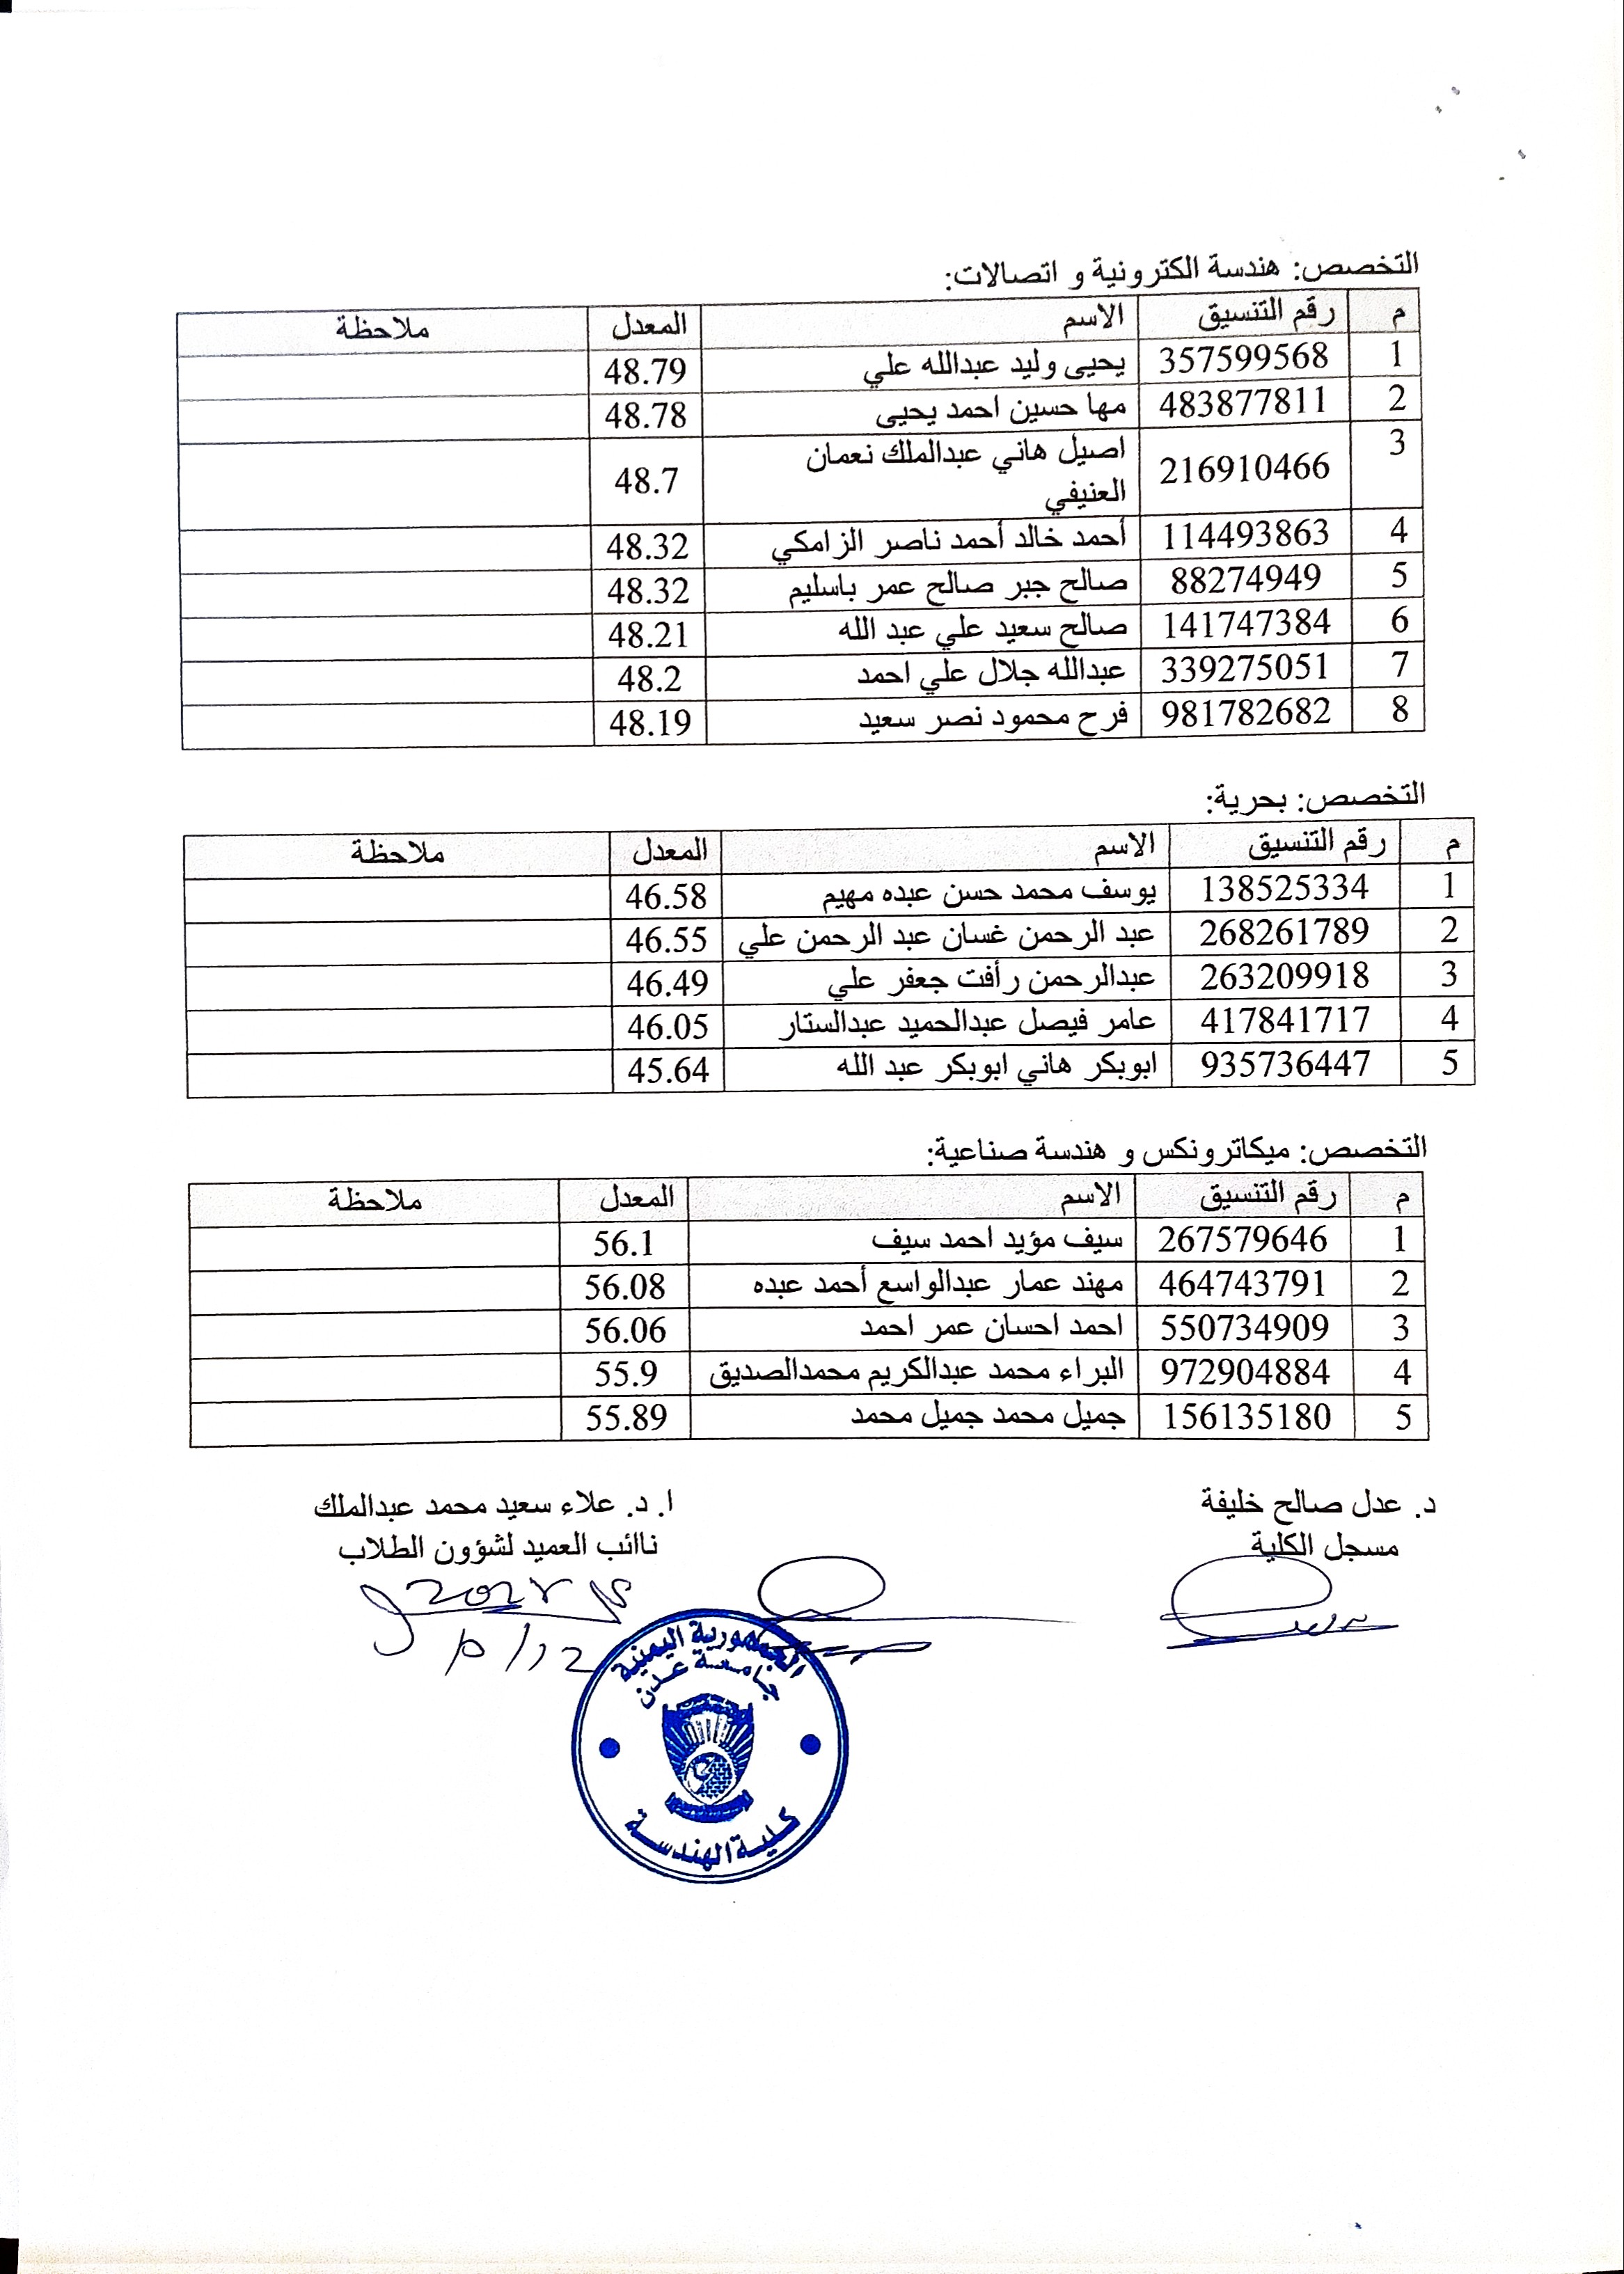 التخصص: هندسة الكترونية و اتصالات:
م رقم التنسيق الاسم المعدل ملاحظة
1 357599568 يحيى وليد عبدالله علي 48.79
2 483877811 مها حسين احمد يحيى 48.78
3 216910466 اصيل هاني عبدالملك نعمان 48.7
العنيفي
4 114493863 أحمد خالد أحمد ناصر الزامكي 48.32
5 88274949 صالح جبر صالح عمر باسليم 48.32
6 141747384 صالح سعيد علي عبد الله 48.21
7 339275051 عبدالله جلال علي احمد 48.2
8 981782682 فرح محمود نصر سعيد 48.19
التخصص: بحرية:
م رقم التنسيق الاسم المعدل ملاحظة
1 138525334 يوسف محمد حسن عبده مهيم 46.58
2 268261789 عبد الرحمن غسان عبد الرحمن علي 46.55
3 263209918 عبدالرحمن رأفت جعفر علي 46.49
4 417841717 عامر فيصل عبدالحميد عبدالستار 46.05
5 935736447 ابوبكر هاني ابوبكر عبد الله 45.64
التخصص: ميكاترونكس و هندسة صناعية:
م رقم التنسيق الاسم المعدل ملاحظة
1 267579646 سيف مؤيد احمد سيف 56.1
2 464743791 مهند عمار عبدالواسع أحمد عبده 56.08
3 550734909 احمد احسان عمر احمد 56.06
4 972904884 البراء محمد عبدالكريم محمدالصديق 55.9
5 156135180 جميل محمد جميل محمد 55.89
د. عدل صالح خليفة
مسجل الكلية
ا. د. علاء سعيد محمد عبدالملك
نائب العميد لشؤون الطلاب
الجمهورية اليمنية
جامعة عدن
كلية الهندسة